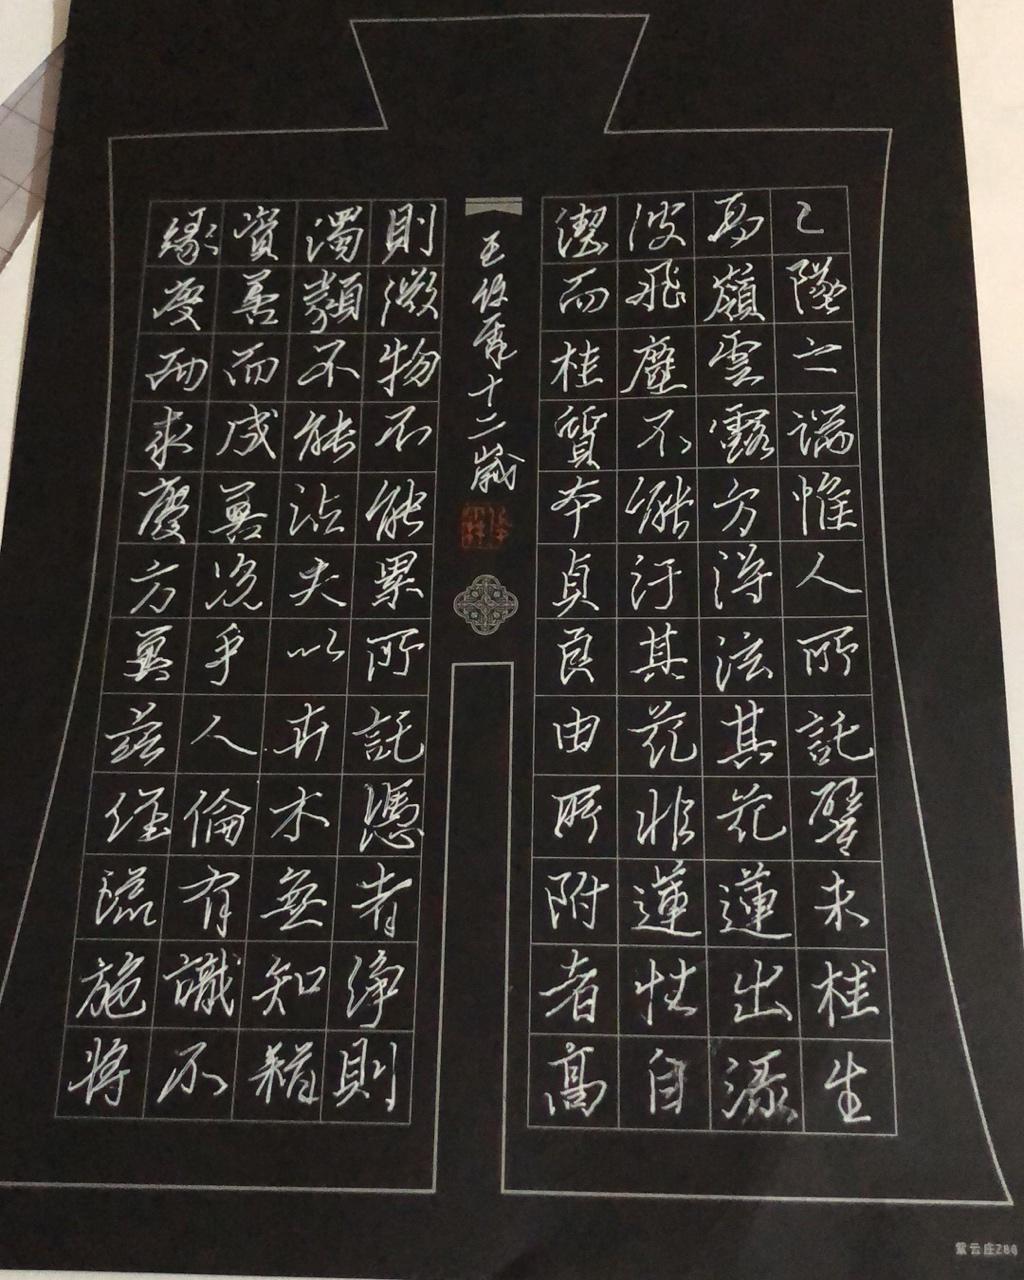 已墜之端惟人所託譬夫桂生
高嶺雲露方得泫其花蓮出淥
波飛塵不能汙其葉非蓮性自
潔而桂質本貞良由所附者高
王十二歲
則微物不能累所託憑者淨則
濁類不能沾夫以卉木無知猶
資善而成善況乎人倫有識不
緣慶而求慶方冀茲經流施將
紫云庄Z86